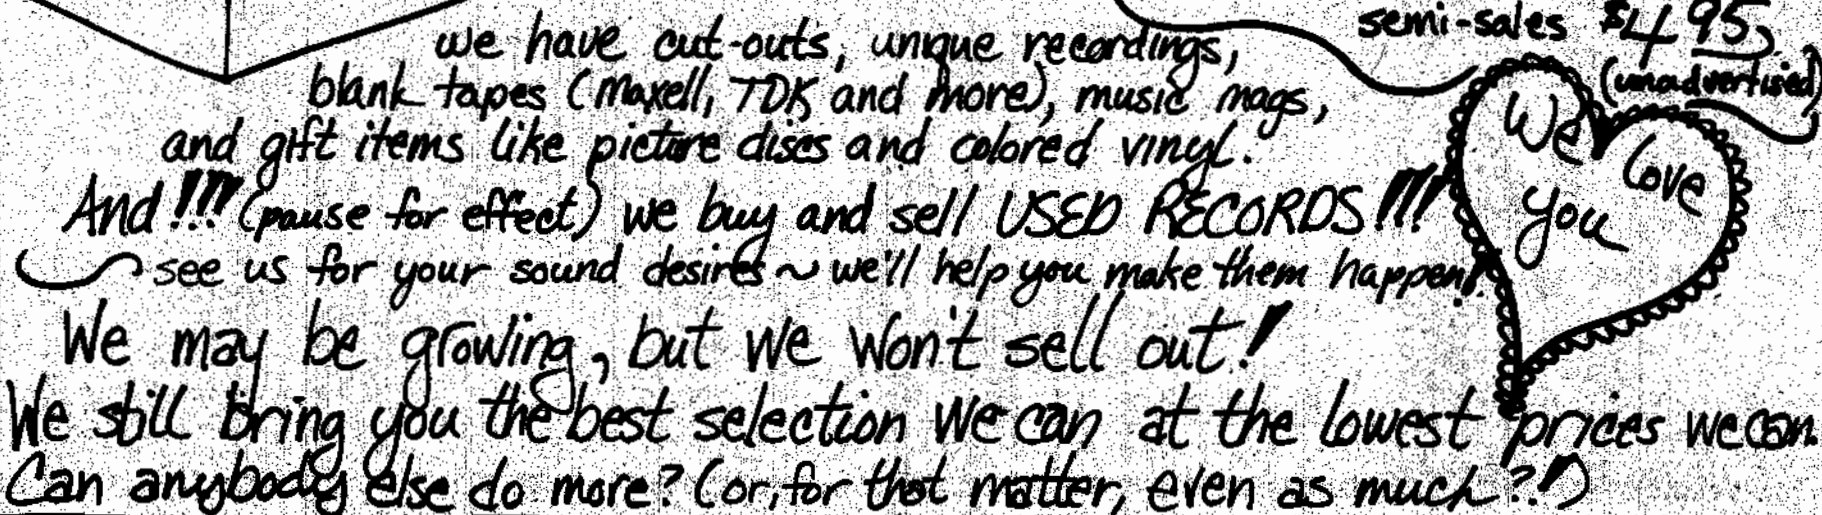 semi-sales $4.95
(unadvertised)
we have cut-outs, unique recordings,
blank tapes (Maxell, TDK and more), music mags,
and gift items like picture discs and colored vinyl.
And!!! (pause for effect) we buy and sell USED RECORDS!!!
see us for your sound desires ~ we'll help you make them happen!
We may be growing, but we won't sell out!
We still bring you the best selection we can at the lowest prices we can.
Can anybody else do more? (or, for that matter, even as much?!)
We
Love
you